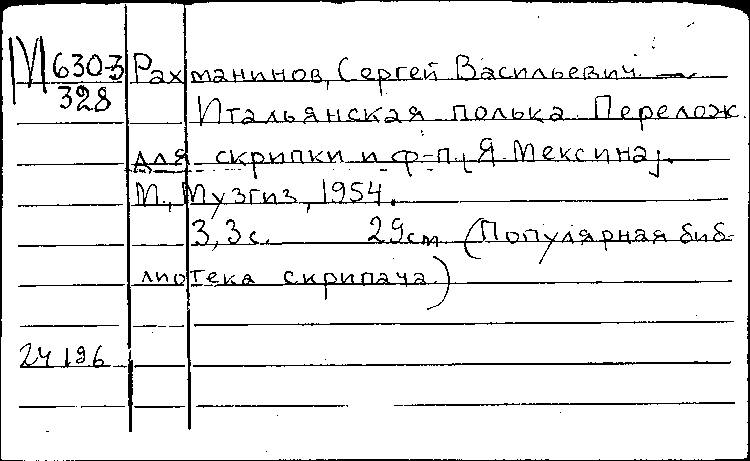 М 630-3 Рахманинов, Сергей Васильевич. —
328
Итальянская полька. Перелож.
для скрипки и ф-п. [Я. Мексина].
М., Музгиз, 1954.
3, 3 с. 29 см (Популярная биб-
лиотека скрипача)
24196